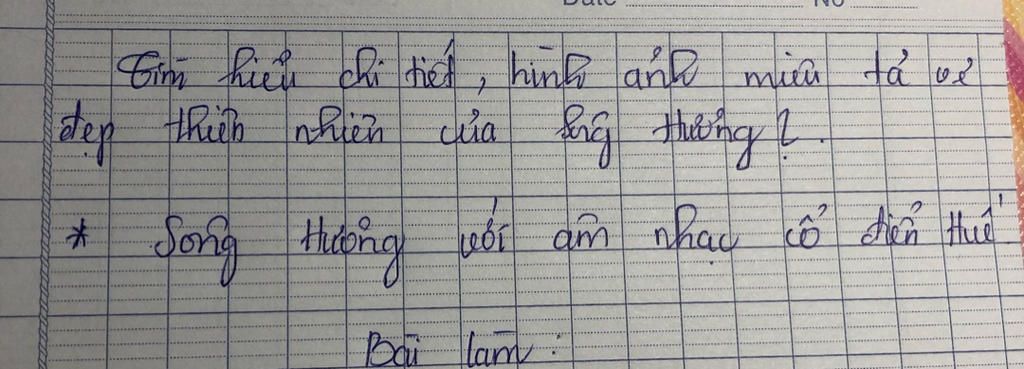 Date No
Tìm hiểu chi tiết, hình ảnh miêu tả vẻ
đẹp thiên nhiên của sông Hương?
* Sông Hương với âm nhạc cổ điển Huế
Bài làm: